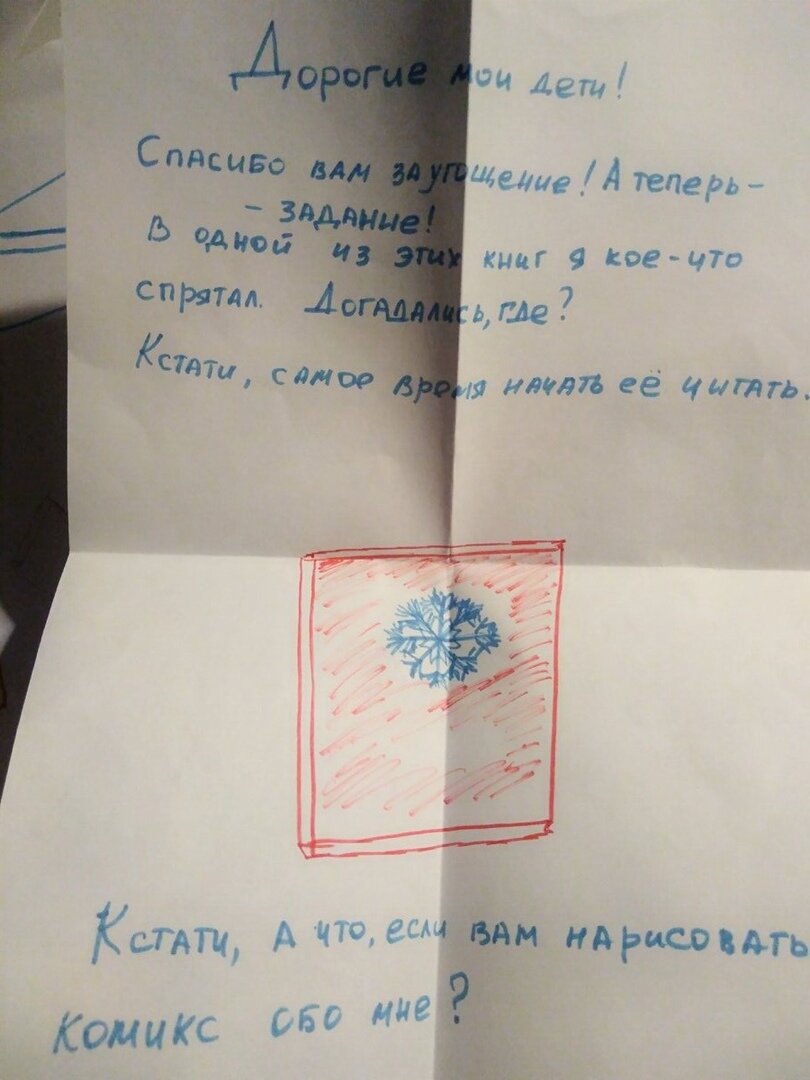 Дорогие мои дети!
Спасибо вам за угощение! А теперь-
- задание!
В одной из этих книг я кое-что
спрятал. Догадались, где?
Кстати, самое время начать её читать.
Кстати, а что, если вам нарисовать
комикс обо мне?